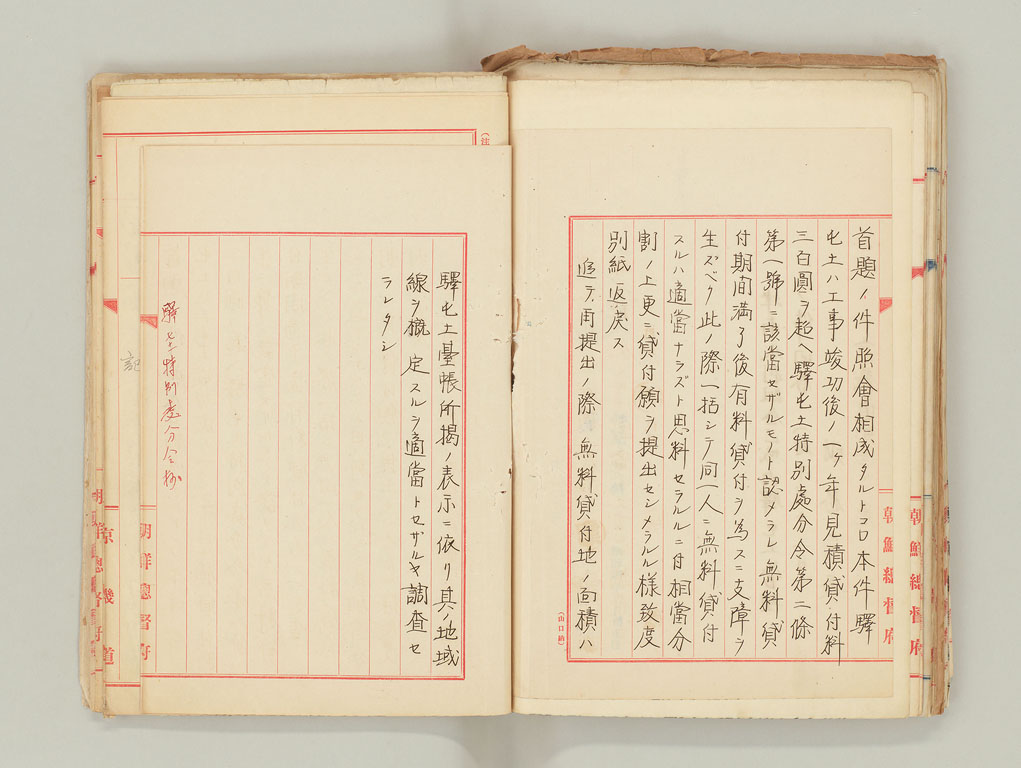 首題ノ件照會相成タルトコロ本件驛
屯土ハ工事竣功後ノ一ケ年見積貸付料
三百圓ヲ超ヘ驛屯土特別處分令第二條
第一號ニ該當セザルモノト認メラレ無料貸
付期間満了後有料貸付ヲ為スニ支障ヲ
生ズベク此ノ際一括シテ同一人ニ無料貸付
スルハ適當ナラズト思料セラルルニ付相當分
割ノ上更ニ貸付願ヲ提出セシメラルル様致度
別紙返戻ス
追テ再提出ノ際無料貸付地ノ面積ハ
朝鮮總督府
朝鮮總督府
(山口納)
驛屯土臺帳所揭ノ表示ニ依リ其ノ地域
線ヲ概定スルヲ適當トセザルヤ調査セ
ラレタシ
朝鮮總督府
驛屯土特別處分令抄
記
京畿道
朝鮮總督府
(注